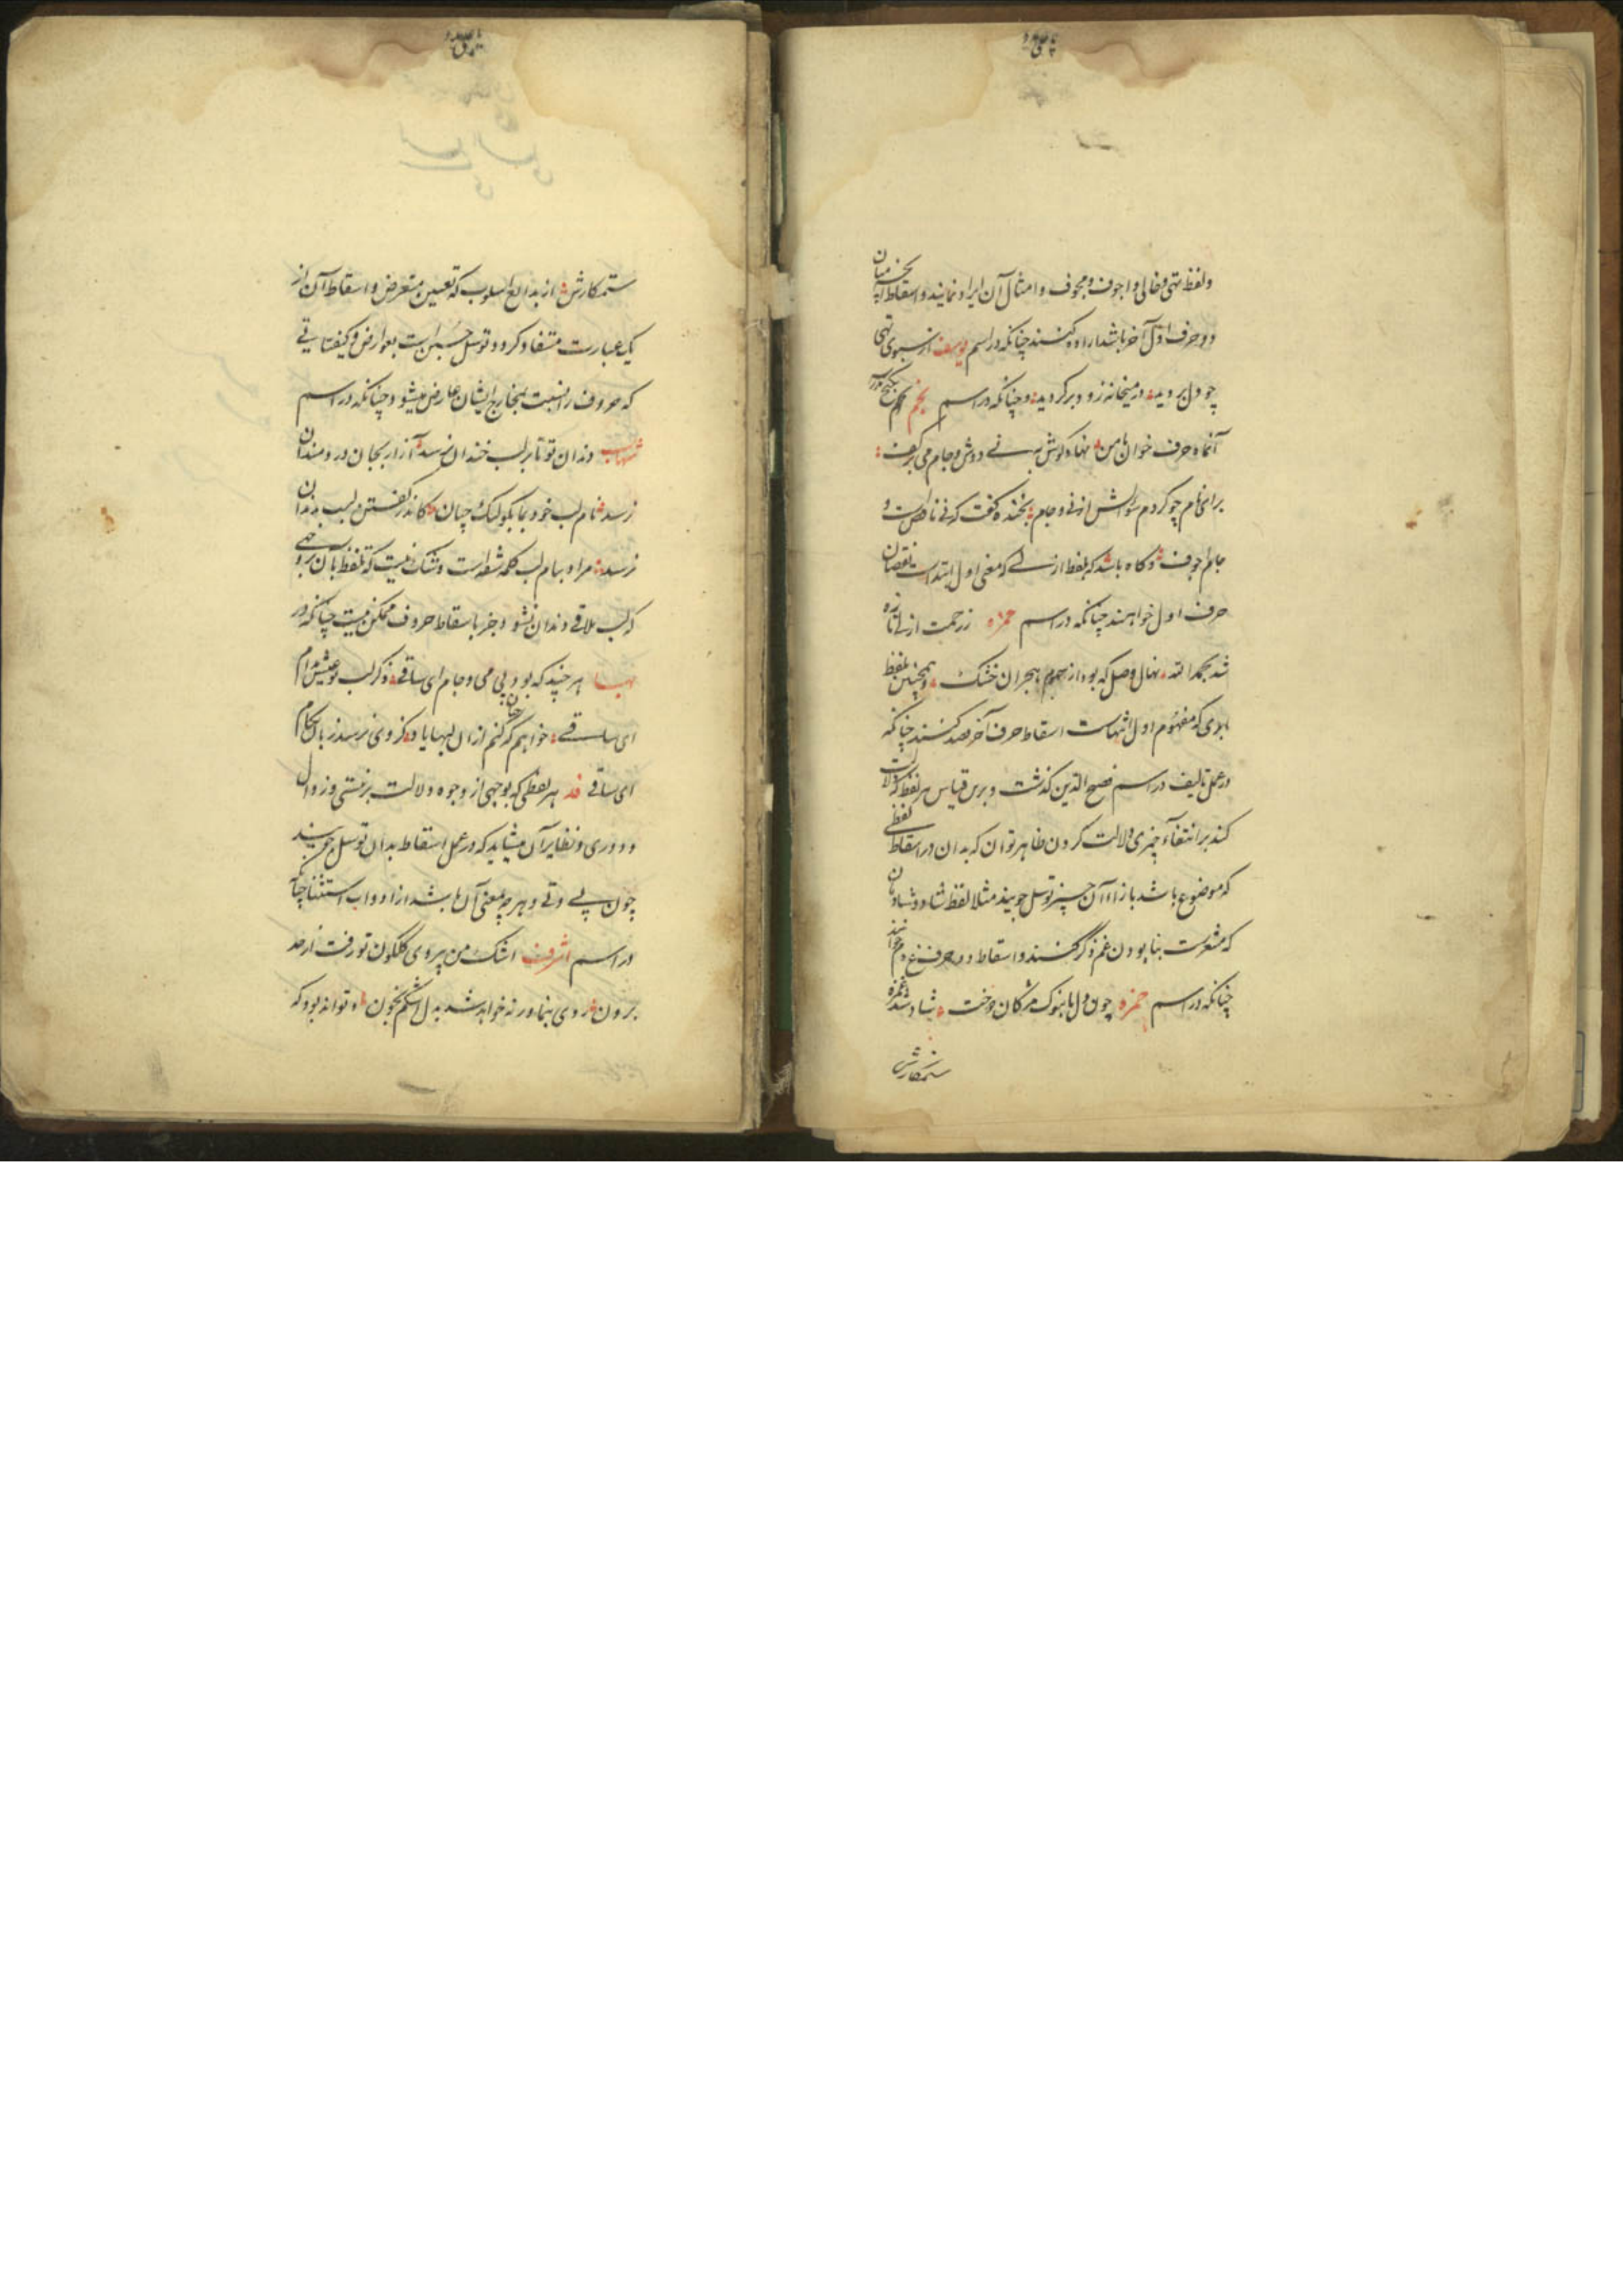 ولفظ تهی و خالی و اجوف و مجوف و امثال آن ایراد نمایند و اسقاط آنچه میان
دو حرف اول آخر باشد اراده کنند چنانکه در اسم یوسف از سبوی تهی
چو دل برید در میخانه زود برگردید و چنانکه در اسم نجم
آنماه حرف خوان من نی و دوش و جام می بر کف
برای نام چو کردم سؤالش از نی و جام بخنده گفت که نی ناقص است و
جام اجوف و گاه باشد که بلفظ ازلی که معنی اول ابتداست نقصان
حرف اول خواهند چنانکه در اسم حمزه ز رحمت ازلی تازه
شد بحمد الله نهال وصل که بود از سموم هجران خشک و همچنین بلفظ
ابدی که مفهوم اول انتهاست اسقاط حرف آخر قصد کنند چنانکه
در عمل تالیف در اسم فصیح الدین گذشت و برین قیاس هر لفظ که دلالت
کند بر انتفاء چیزی دلالت کردن ظاهر توان که بدان در اسقاط لفظی
که موضوع باشد بازاء آن چیز توسل جویند مثلا لفظ شاد و شادمان
که مشعرست بنابودن غم ذکر کنند و اسقاط دو حرف غ و م خوانند
چنانکه در اسم حمزه چون دل ما بنوک مژگان دوخت شاد شد غمزه
ستمکارش
ستمکارش از بدایع اسلوب که تعیین متعرض و اسقاط آن از
یک عبارت مستفاد گردد توسل جستن است بعوارض و کیفیاتی
که حروف را نسبت بمخارج ایشان عارض میشود چنانکه در اسم
شهاب دندان تو تا بر لب خندان نرسد آزار بجان دردمندان
نرسد نام لب خود بما بگو لیک چنان کاندر گفتن لب بدندان
نرسد مراد بنام لب کلمه شفه است و شک نیست که تلفظ بآن بروجهی
که لب ملاقی دندان نشود جز باسقاط حروف ممکن نیست چنانکه در
هر چند که بود بی می و جام ای ساقی ذکر لب تو عیش مدام
ای ساقی خواهم که کنم از آن لبها یاد کزوی نرسد زبان بکام
ای ساقی قد هر لفظی که بوجهی از وجوه دلالت بر نیستی و زوال
و دوری و نظایر آن مینماید که در عمل اسقاط بدان توسل جویند
چون بی و نی و هر چه بمعنی آن باشد از ادوات استثنا چنانکه
در اسم اشرف اشک من پیروی گلگون تو رفت از حد
برون روی بنما ور نه خواهد شد بدل اشکم بخون و تواند بود که